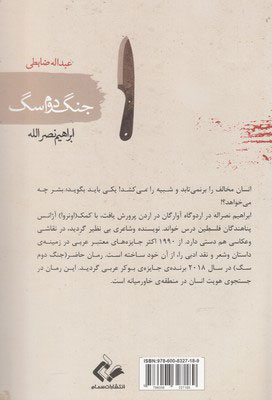 عبداله ضابطی
جنگ دوم سگ
ابراهیم نصرالله
انسان مخالف را برنمی‌تابد و شبیه را می‌کشد! یکی باید بگوید: بشر چه
می‌خواهد؟!
ابراهیم نصراله در اردوگاه آوارگان در اردن پرورش یافت، با کمک (اونروا) آژانس
پناهندگان فلسطین درس خواند. نویسنده وشاعری بی نظیر گردید، در نقاشی
وعکاسی هم دستی دارد. از ۱۹۹۰ اکثر جایزه‌های معتبر عربی در زمینه‌ی
داستان وشعر و نقد ادبی را، از آن خود ساخته است. رمان حاضر(جنگ دوم
سگ) در سال ۲۰۱۸ برنده‌ی جایزه‌ی بوکر عربی گردید. این رمان در
جستجوی هویت انسان در منطقه‌ی خاورمیانه است.
ISBN: 978-600-8327-18-9
انتشارات صمام